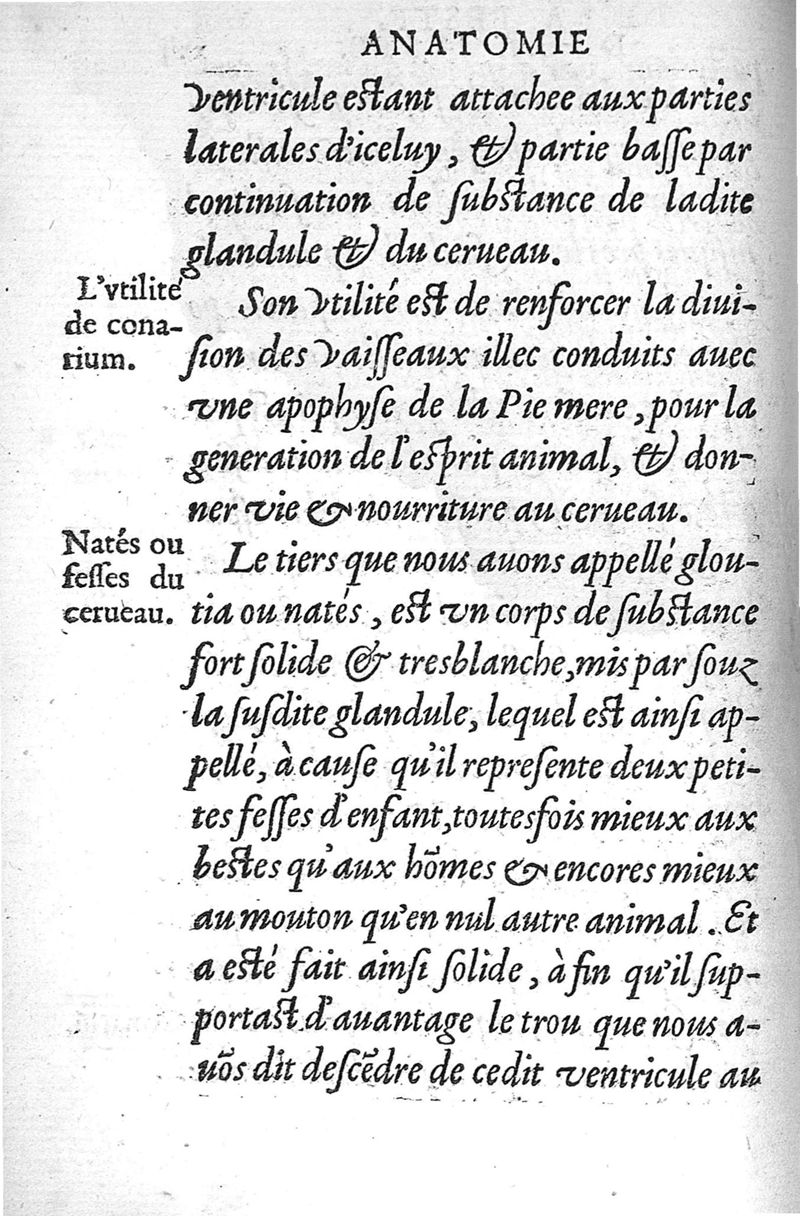 ANATOMIE
ventricule estant attachee aux parties
laterales d'iceluy, & partie basse par
continuation de substance de ladite
glandule & du cerueau.
L'vtilité
de cona-
rium.
Son vtilité est de renforcer la diui-
sion des vaisseaux illec conduits auec
vne apophyse de la Pie mere, pour la
generation de l'esprit animal, & don-
ner vie & nourriture au cerueau.
Natés ou
fesses du
cerueau.
Le tiers que nous auons appellé glou-
tia ou natés, est vn corps de substance
fort solide & tresblanche, mis par souz
la susdite glandule, lequel est ainsi ap-
pellé, à cause qu'il represente deux peti-
tes fesses d'enfant, toutesfois mieux aux
bestes qu'aux hõmes & encores mieux
au mouton qu'en nul autre animal. Et
a esté fait ainsi solide, à fin qu'il sup-
portast d'auantage le trou que nous a-
uõs dit descẽdre de cedit ventricule au